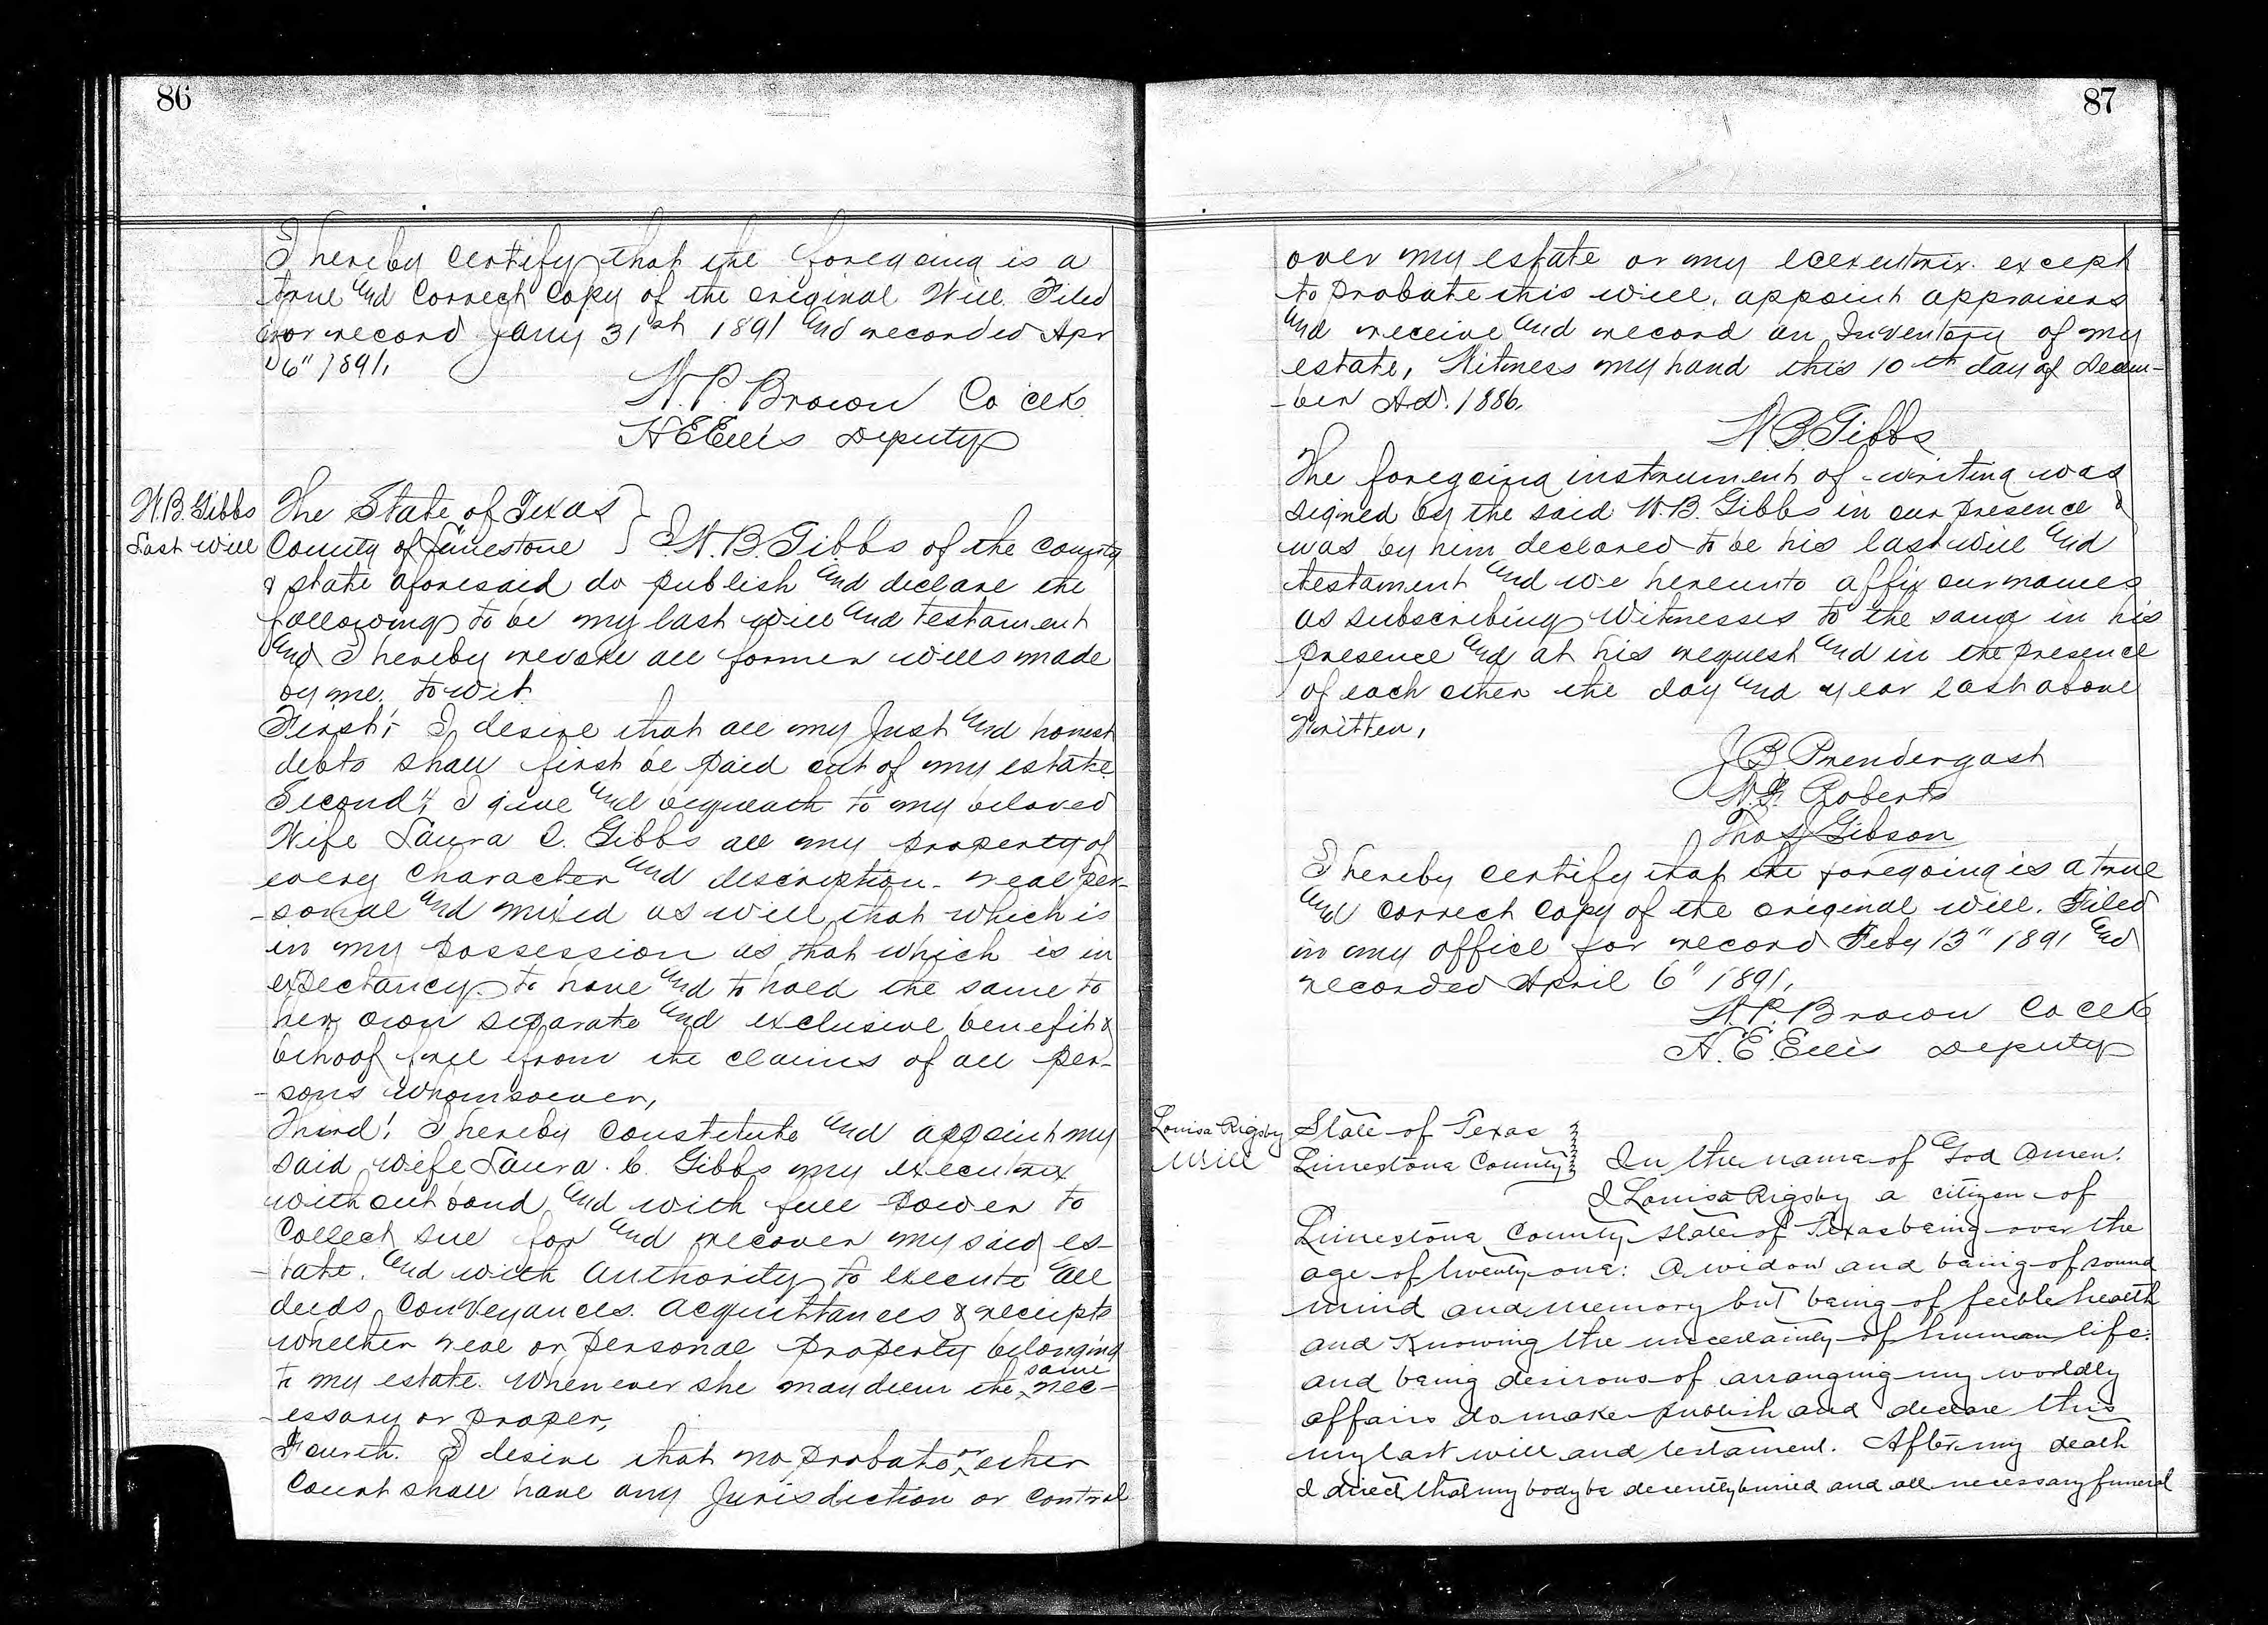 86
I hereby certify that the foregoing is a
true and Correct Copy of the original Will. Filed
for record Jany 31st 1891 and recorded Apr
6" 1891,
W. P. Brown Co clk
H E Ellis Deputy
W. B. Gibbs
Last Will
The State of Texas
County of Limestone } I W. B. Gibbs of the county
& state aforesaid do publish and declare the
following to be my last will and testament
and I hereby revoke all former wills made
by me, to wit
First; I desire that all my Just and honest
debts shall first be paid out of my estate
Second; I give and bequeath to my beloved
Wife Laura C. Gibbs all my property of
every Character and description - real per-
-sonal and mixed as well that which is
in my possession as that which is in
expectancy to have and to hold the same to
her own separate and exclusive benefit &
behoof free from the claims of all per-
-sons whomsoever,
Third! I hereby Constitute and appoint my
said wife Laura. C. Gibbs my executrix
without bond and with full power to
Collect sue for and recover my said es-
-tate. and with authority to execute all
deeds, Conveyances. acquittances & receipts
whether real or personal property belonging
to my estate. Whenever she may deem the same nec-
-essary or proper,
Fourth. I desire that no probate or other
Court shall have any Jurisdiction or control
87
over my estate or my executrix. except
to probate this will, appoint appraisers
and receive and record an Inventory of my
estate, Witness my hand this 10th day of Decem-
-ber A.D. 1886.
W. B. Gibbs
The foregoing instrument of writing was
signed by the said W. B. Gibbs in our presence &
was by him declared to be his last will and
testament and we hereunto affix our names
as subscribing Witnesses to the same in his
presence and at his request and in the presence
of each other the day and year last above
Written,
J. B. Prendergast
Roberts
Thos Gibson
I hereby certify that the foregoing is a true
and correct Copy of the original will. Filed
in my office for record Feby 13" 1891 and
recorded April 6" 1891,
W. P. Brown Co clk
H. E. Ellis Deputy
Louisa Rigsby
Will
State of Texas
Limestone County } In the name of God Amen!
I Louisa Rigsby a citizen of
Limestone County State of Texas being over the
age of twenty one: A widow and being of sound
mind and memory but being of feeble health
and Knowing the uncertainty of human life.
and being desirous of arranging my worldly
affairs do make publish and declare this
my last will and testament. After my death
I direct that my body be decently buried and all necessary funeral